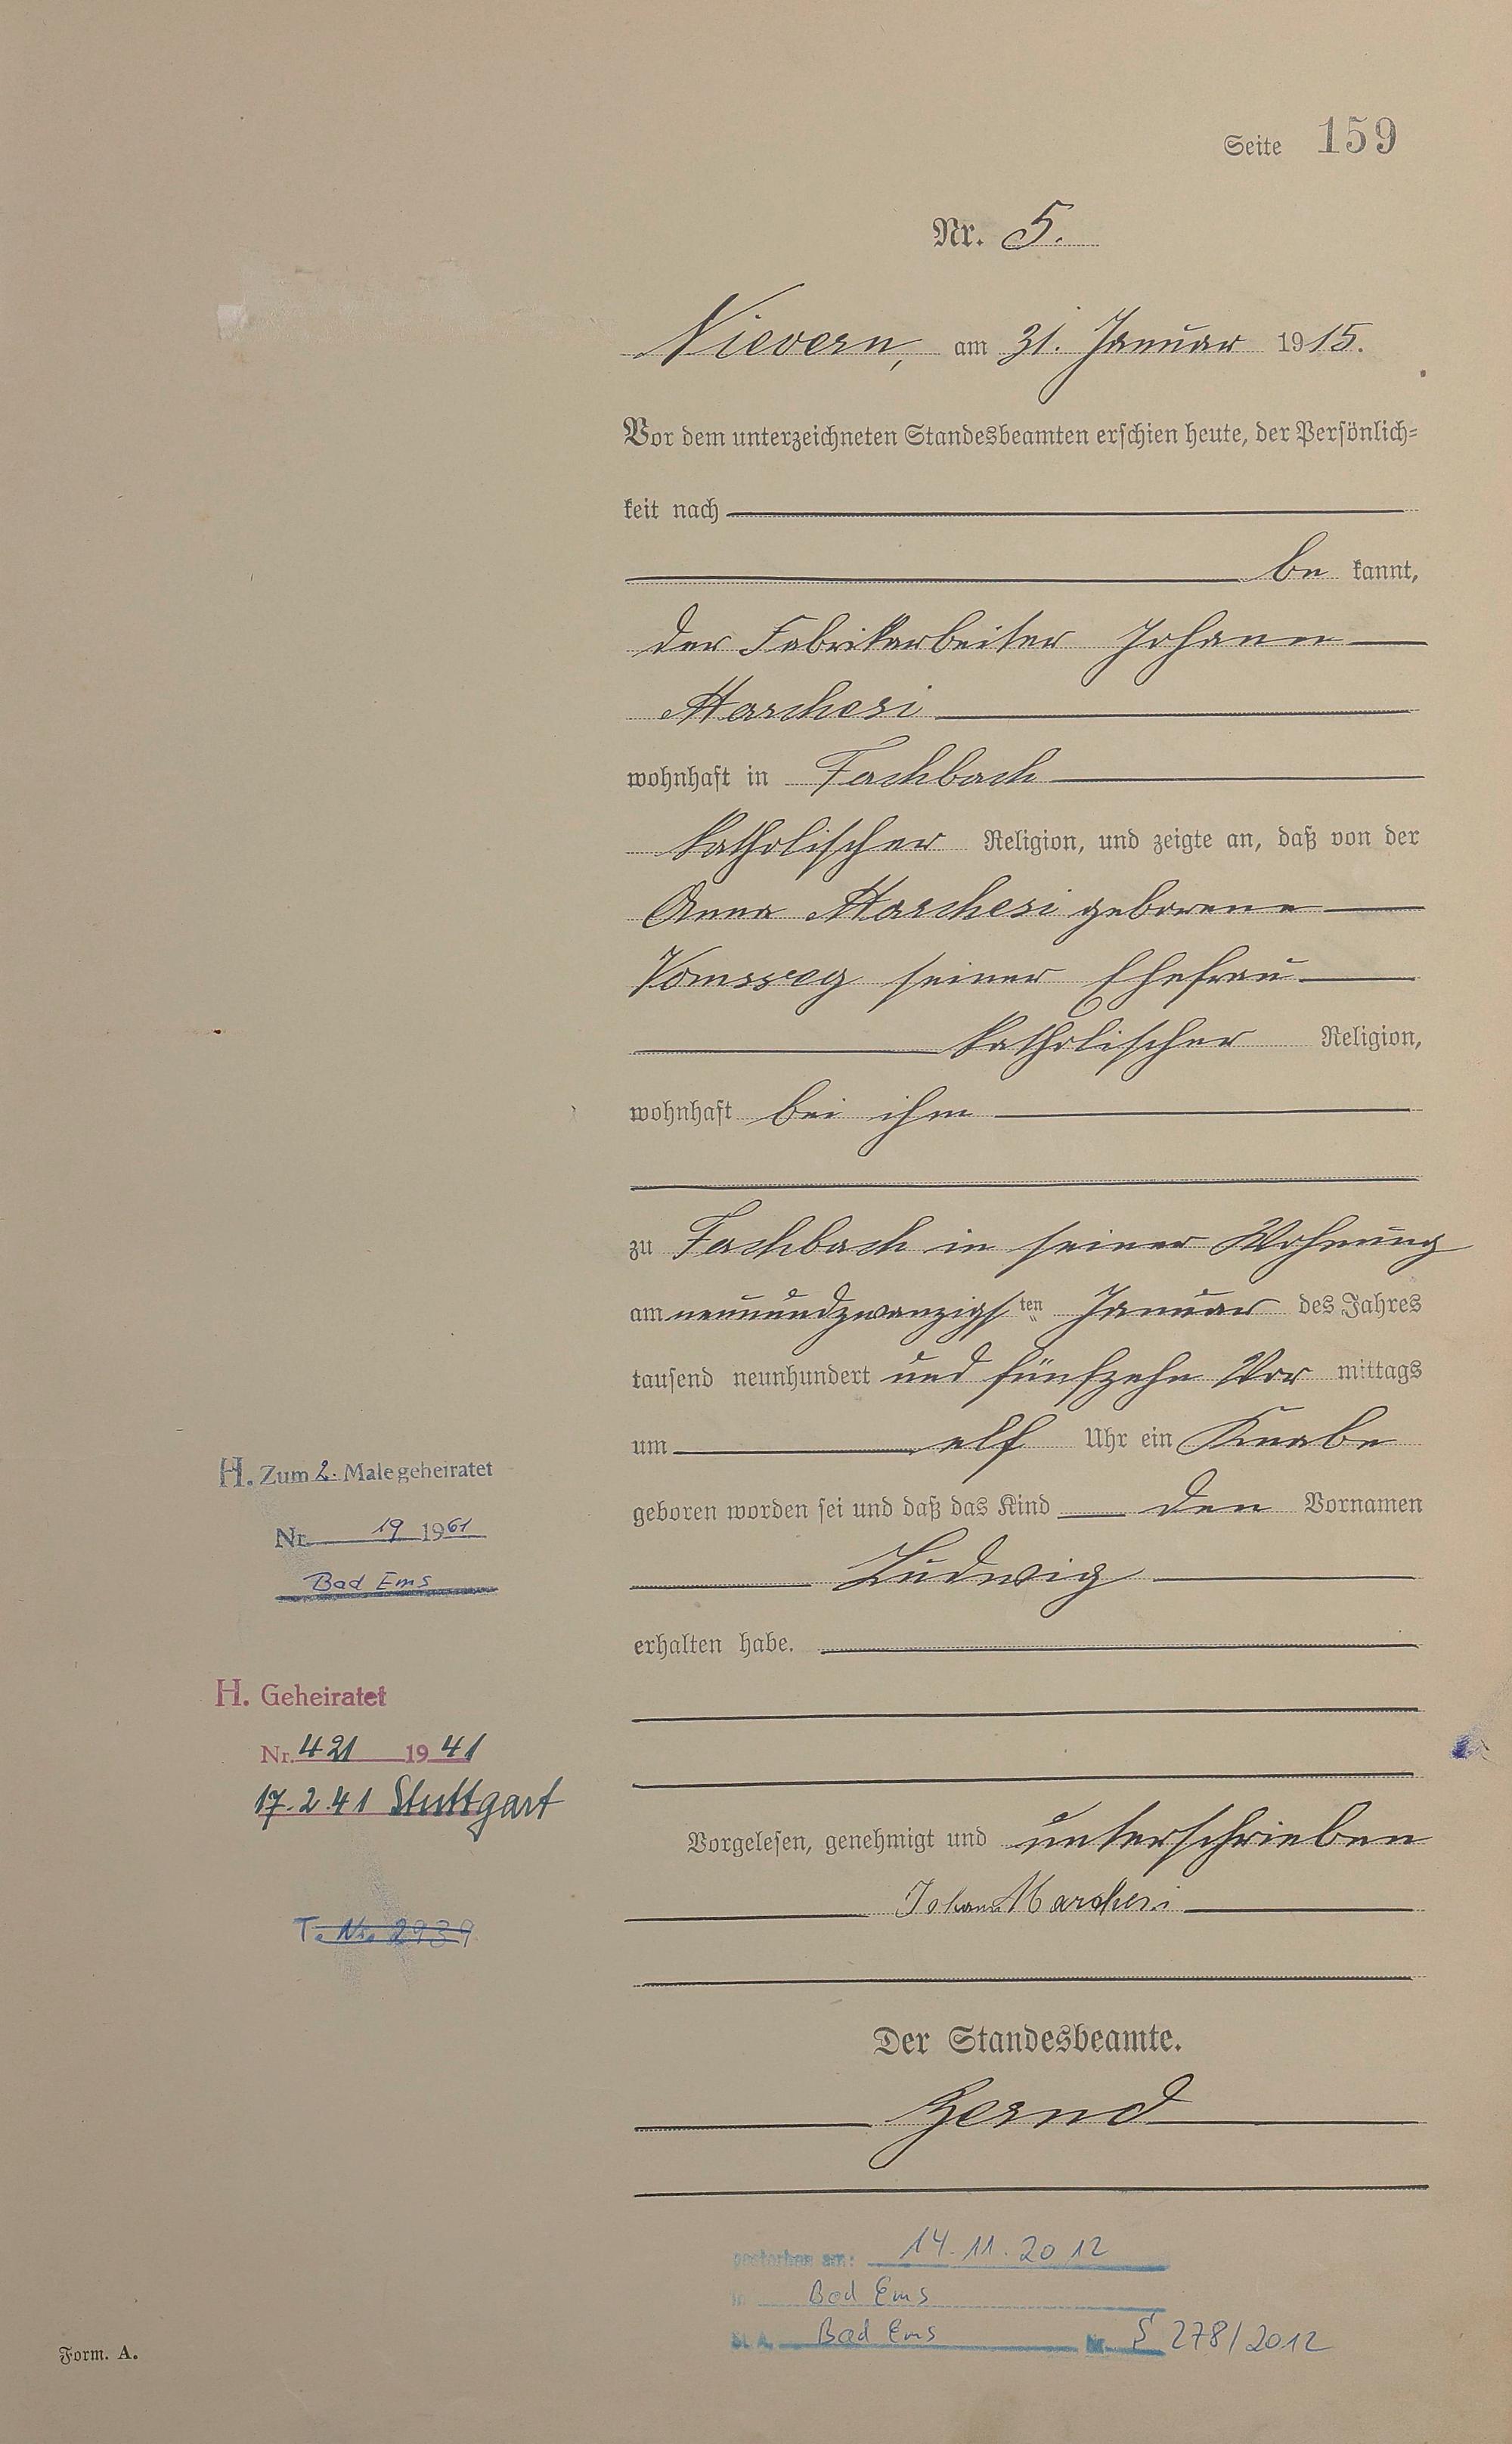 Seite 159
Nr. 5.
Nievern, am 31. Januar 1915.
Vor dem unterzeichneten Standesbeamten erschien heute, der Persönlich-
keit nach
be kannt,
der Fabrikarbeiter Johann
Marchesi
wohnhaft in Fachbach
katholischer Religion, und zeigte an, daß von der
Anna Marchesi geborene
seiner Ehefrau
katholischer Religion,
wohnhaft bei ihm
zu Fachbach in seiner Wohnung
am neunundzwanzigsten Januar des Jahres
tausend neunhundert und fünfzehn Vor mittags
um elf Uhr ein Knabe
geboren worden sei und daß das Kind den Vornamen
Ludwig
erhalten habe.
Vorgelesen, genehmigt und unterschrieben
Johann Marchesi
Der Standesbeamte.
Zernd
gestorben am: 14.11.2012
in Bad Ems
St. A. Bad Ems Nr. S 278/2012
H. Zum 2. Male geheiratet
Nr. 19 1961
Bad Ems
H. Geheiratet
Nr. 421 1941
17.2.41 Stuttgart
T. Nr. 2939
Form. A.